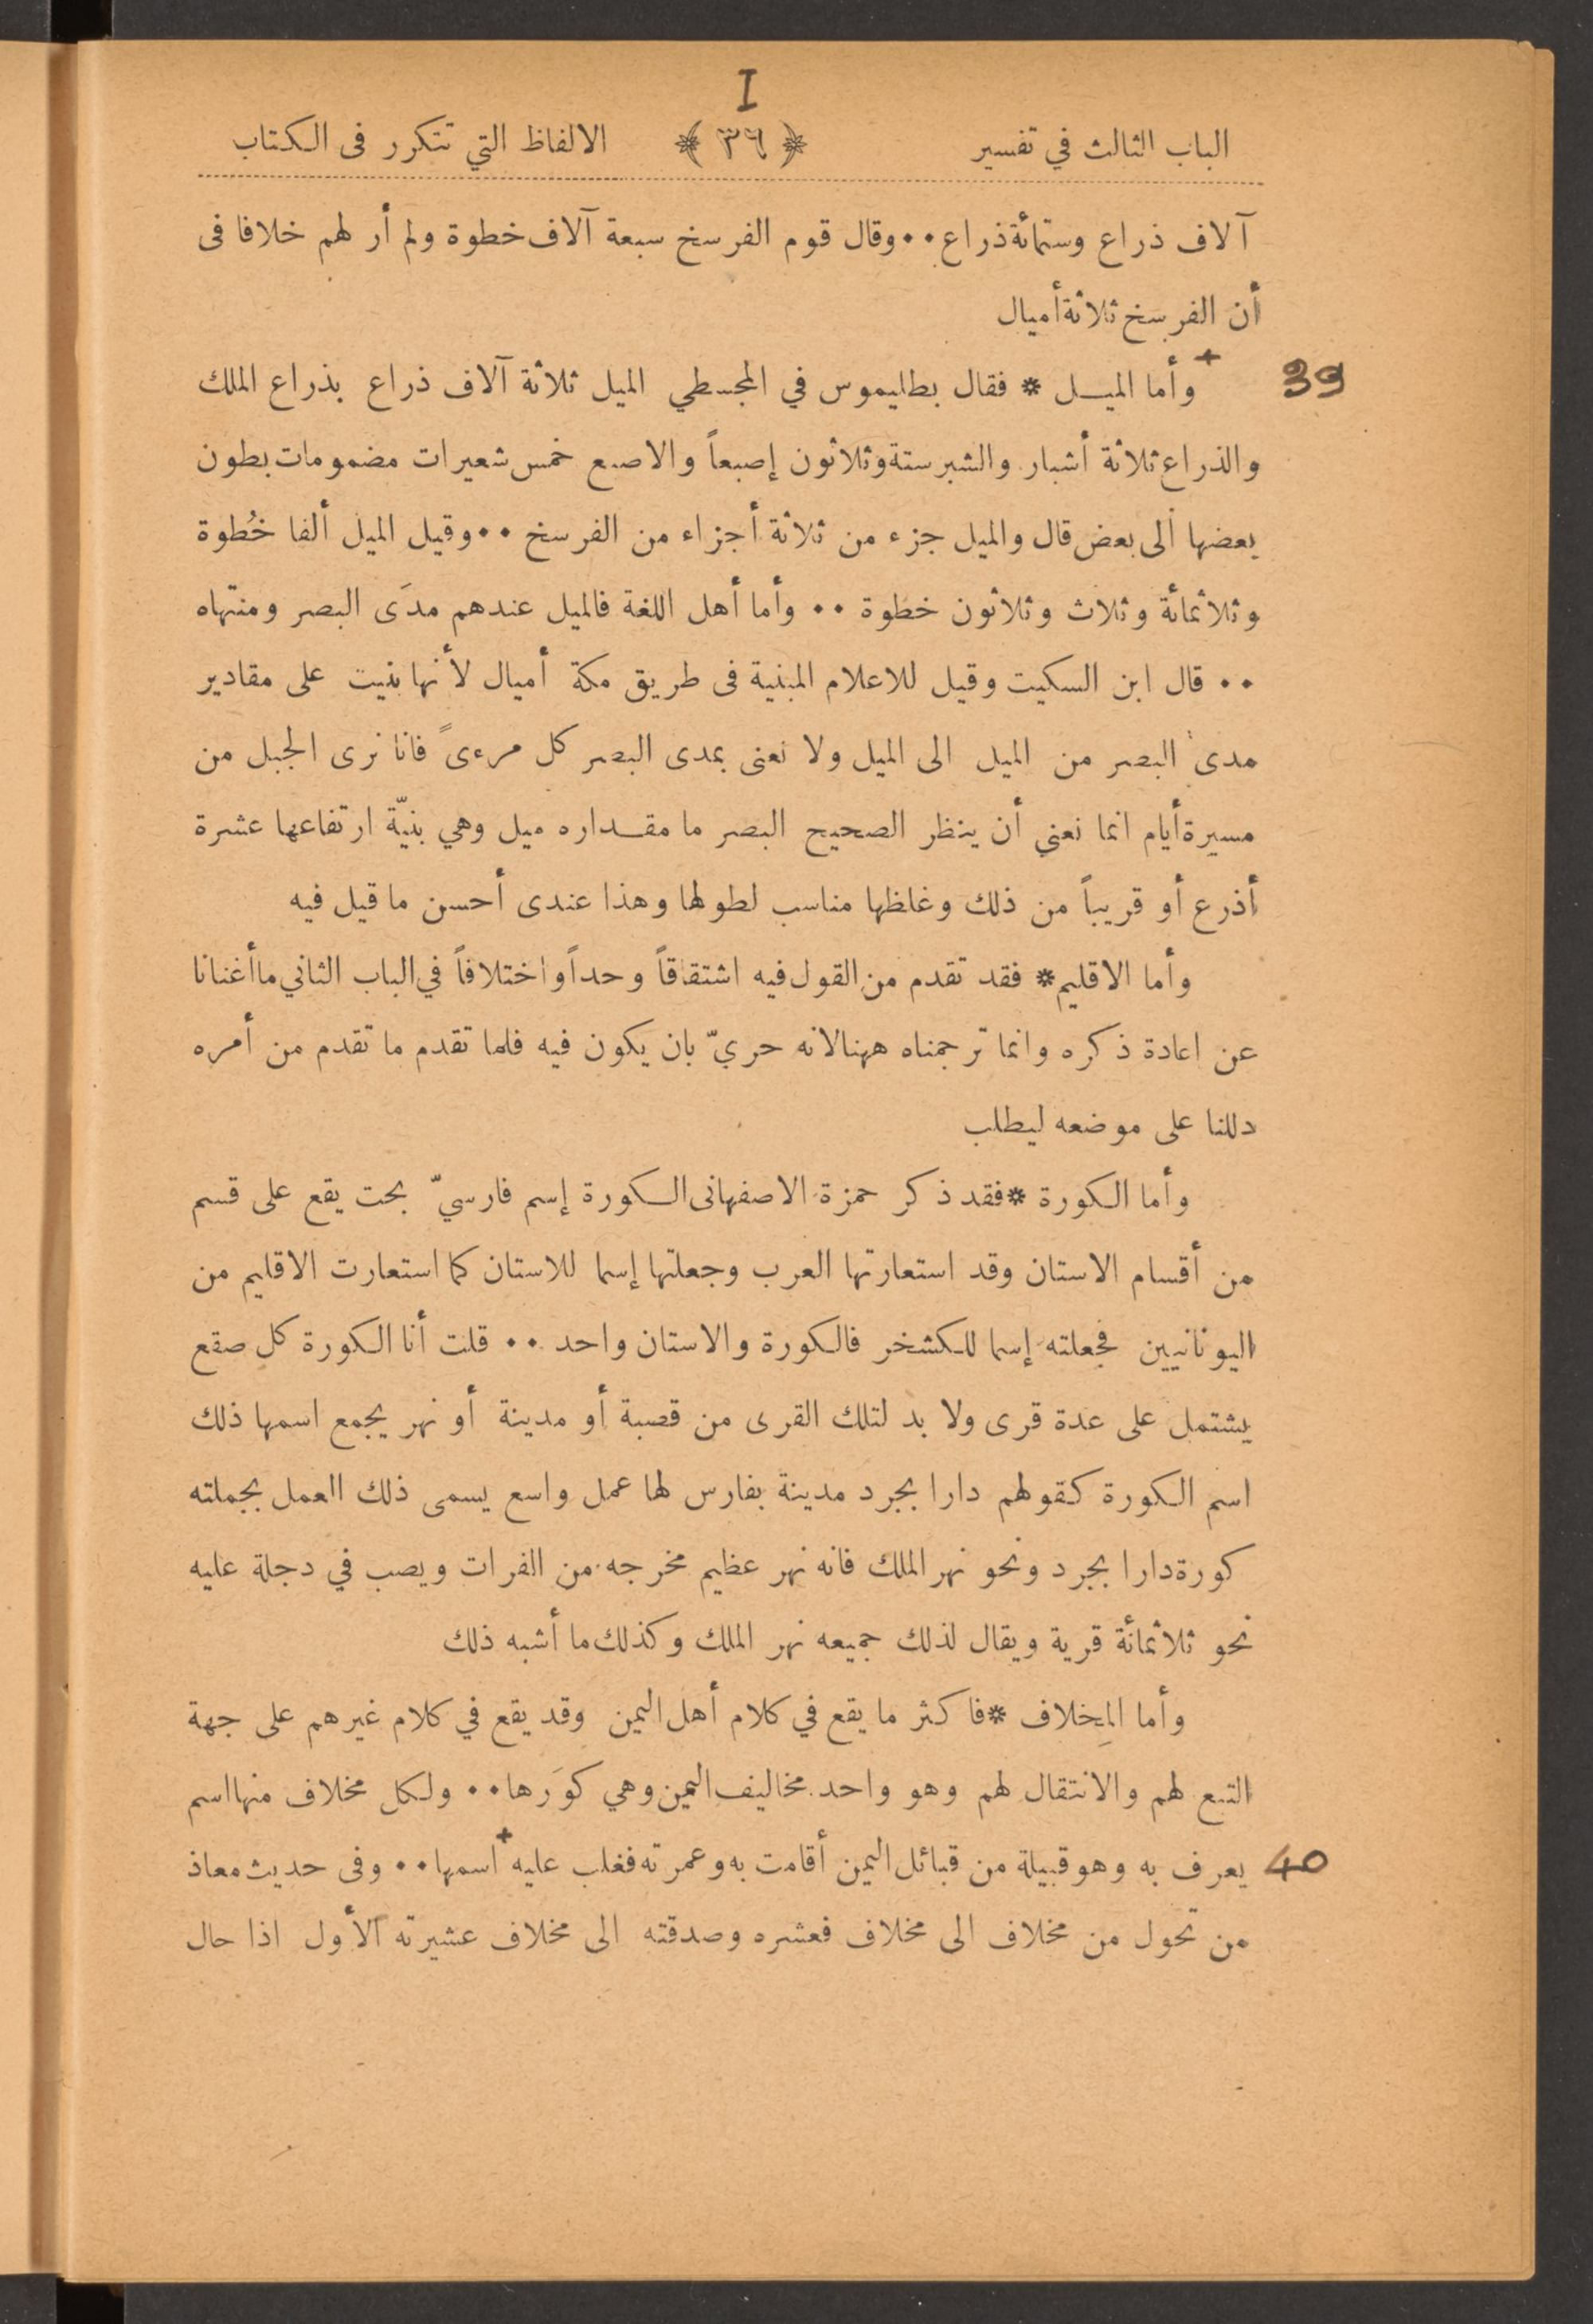 I
الباب الثالث في تفسير ﴿ ٣٦ ﴾ الالفاظ التي تتكرر فى الكتاب
آلاف ذراع وستمائة ذراع •• وقال قوم الفرسخ سبعة آلاف خطوة ولم أر لهم خلافا فى
أن الفرسخ ثلاثة أميال
39 + وأما الميـل * فقال بطليموس في المجسطي الميل ثلاثة آلاف ذراع بذراع الملك
والذراع ثلاثة أشبار والشبر ستة وثلاثون إصبعاً والاصبع خمس شعيرات مضمومات بطون
بعضها ألى بعض قال والميل جزء من ثلاثة أجزاء من الفرسخ •• وقيل الميل ألفا خُطوة
وثلاثمائة وثلاث وثلاثون خطوة •• وأما أهل اللغة فالميل عندهم مدَى البصر ومنتهاه
•• قال ابن السكيت وقيل للاعلام المبنية فى طريق مكة أميال لأنها بنيت على مقادير
مدى البصر من الميل الى الميل ولا نعنى بمدى البصر كل مرءىً فانا نرى الجبل من
مسيرة أيام انما نعني أن ينظر الصحيح البصر ما مقـداره ميل وهي بنيّة ارتفاعها عشرة
أذرع أو قريباً من ذلك وغلظها مناسب لطولها وهذا عندى أحسن ما قيل فيه
وأما الاقليم * فقد تقدم من القول فيه اشتقاقاً وحداً واختلافاً في الباب الثاني ما أغنانا
عن اعادة ذكره وانما ترجمناه ههنا لانه حريّ بان يكون فيه فلما تقدم ما تقدم من أمره
دللنا على موضعه ليطلب
وأما الكورة * فقد ذكر حمزة الاصفهانى الكورة إسم فارسيّ بحت يقع على قسم
من أقسام الاستان وقد استعارتها العرب وجعلتها إسما للاستان كما استعارت الاقليم من
اليونانيين فجعلته إسما للكشخر فالكورة والاستان واحد •• قلت أنا الكورة كل صقع
يشتمل على عدة قرى ولا بد لتلك القرى من قصبة أو مدينة أو نهر يجمع اسمها ذلك
اسم الكورة كقولهم دارا بجرد مدينة بفارس لها عمل واسع يسمى ذلك العمل بجملته
كورة دارا بجرد ونحو نهر الملك فانه نهر عظيم مخرجه من الفرات ويصب في دجلة عليه
نحو ثلاثمائة قرية ويقال لذلك جميعه نهر الملك وكذلك ما أشبه ذلك
وأما المِخلاف * فاكثر ما يقع في كلام أهل اليمن وقد يقع في كلام غيرهم على جهة
التبع لهم والانتقال لهم وهو واحد مخاليف اليمن وهي كوَرها •• ولكل مخلاف منها اسم
40 يعرف به وهو قبيلة من قبائل اليمن أقامت به وعمرته فغلب عليه + اسمها •• وفى حديث معاذ
من تحول من مخلاف الى مخلاف فعشره وصدقته الى مخلاف عشيرته الأول اذا حال